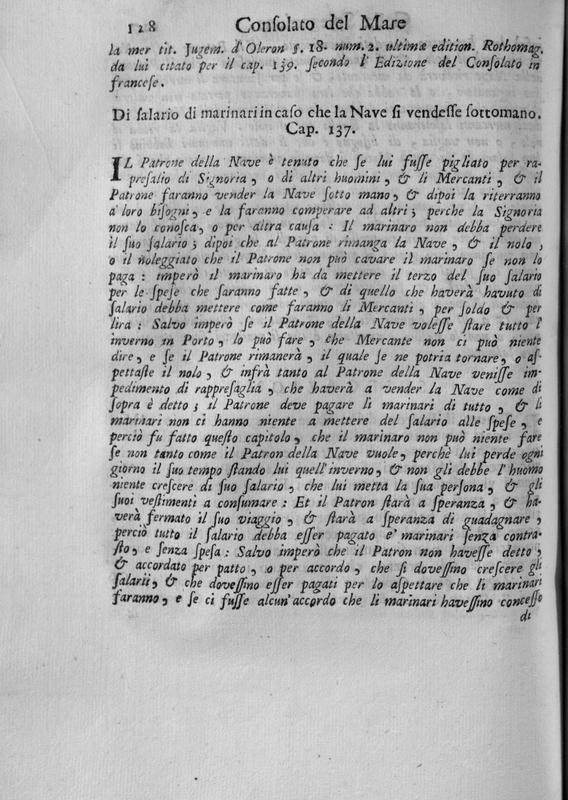 128 Consolato del Mare
la mer tit. Jugem. d'Oleron §. 18. num. 2. ultimæ edition. Rothomag.
da lui citato per il cap. 139. secondo l'Edizione del Consolato in
francese.
Di salario di marinari in caso che la Nave si vendesse sottomano.
Cap. 137.
IL Patrone della Nave è tenuto che se lui fusse pigliato per ra-
presalio di Signoria, o di altri huomini, & li Mercanti, & il
Patrone faranno vender la Nave sotto mano, & dipoi la riterranno
a' loro bisogni, e la faranno comperare ad altri; perche la Signoria
non lo conosca, o per altra causa: Il marinaro non debba perdere
il suo salario; dipoi che al Patrone rimanga la Nave, & il nolo,
o il noleggiato che il Patrone non può cavare il marinaro se non lo
paga: imperò il marinaro ha da mettere il terzo del suo salario
per le spese che saranno fatte, & di quello che haverà havuto di
salario debba mettere come faranno li Mercanti, per soldo & per
lira: Salvo imperò se il Patrone della Nave volesse stare tutto l'
inverno in Porto, lo può fare, che Mercante non ci può niente
dire, e se il Patrone rimanerà, il quale se ne potria tornare, o as-
pettaste il nolo, & infrà tanto al Patrone della Nave venisse im-
pedimento di rappresaglia, che haverà a vender la Nave come di
sopra è detto; il Patrone deve pagare li marinari di tutto, & li
marinari non ci hanno niente a mettere del salario alle spese, e
perciò fu fatto questo capitolo, che il marinaro non può niente fare
se non tanto come il Patron della Nave vuole, perchè lui perde ogni
giorno il suo tempo stando lui quell'inverno, & non gli debbe l'huomo
niente crescere di suo salario, che lui metta la sua persona, & gli
suoi vestimenti a consumare: Et il Patron starà a speranza, & ha-
verà fermato il suo viaggio, & starà a speranza di guadagnare,
perciò tutto il salario debba esser pagato e' marinari senza contra-
sto, e senza spesa: Salvo imperò che il Patron non havesse detto,
& accordato per patto, o per accordo, che si dovessino crescere gli
salarii, & che dovessino esser pagati per lo aspettare che li marinari
faranno, e se ci fusse alcun'accordo che li marinari havessino concesso
di